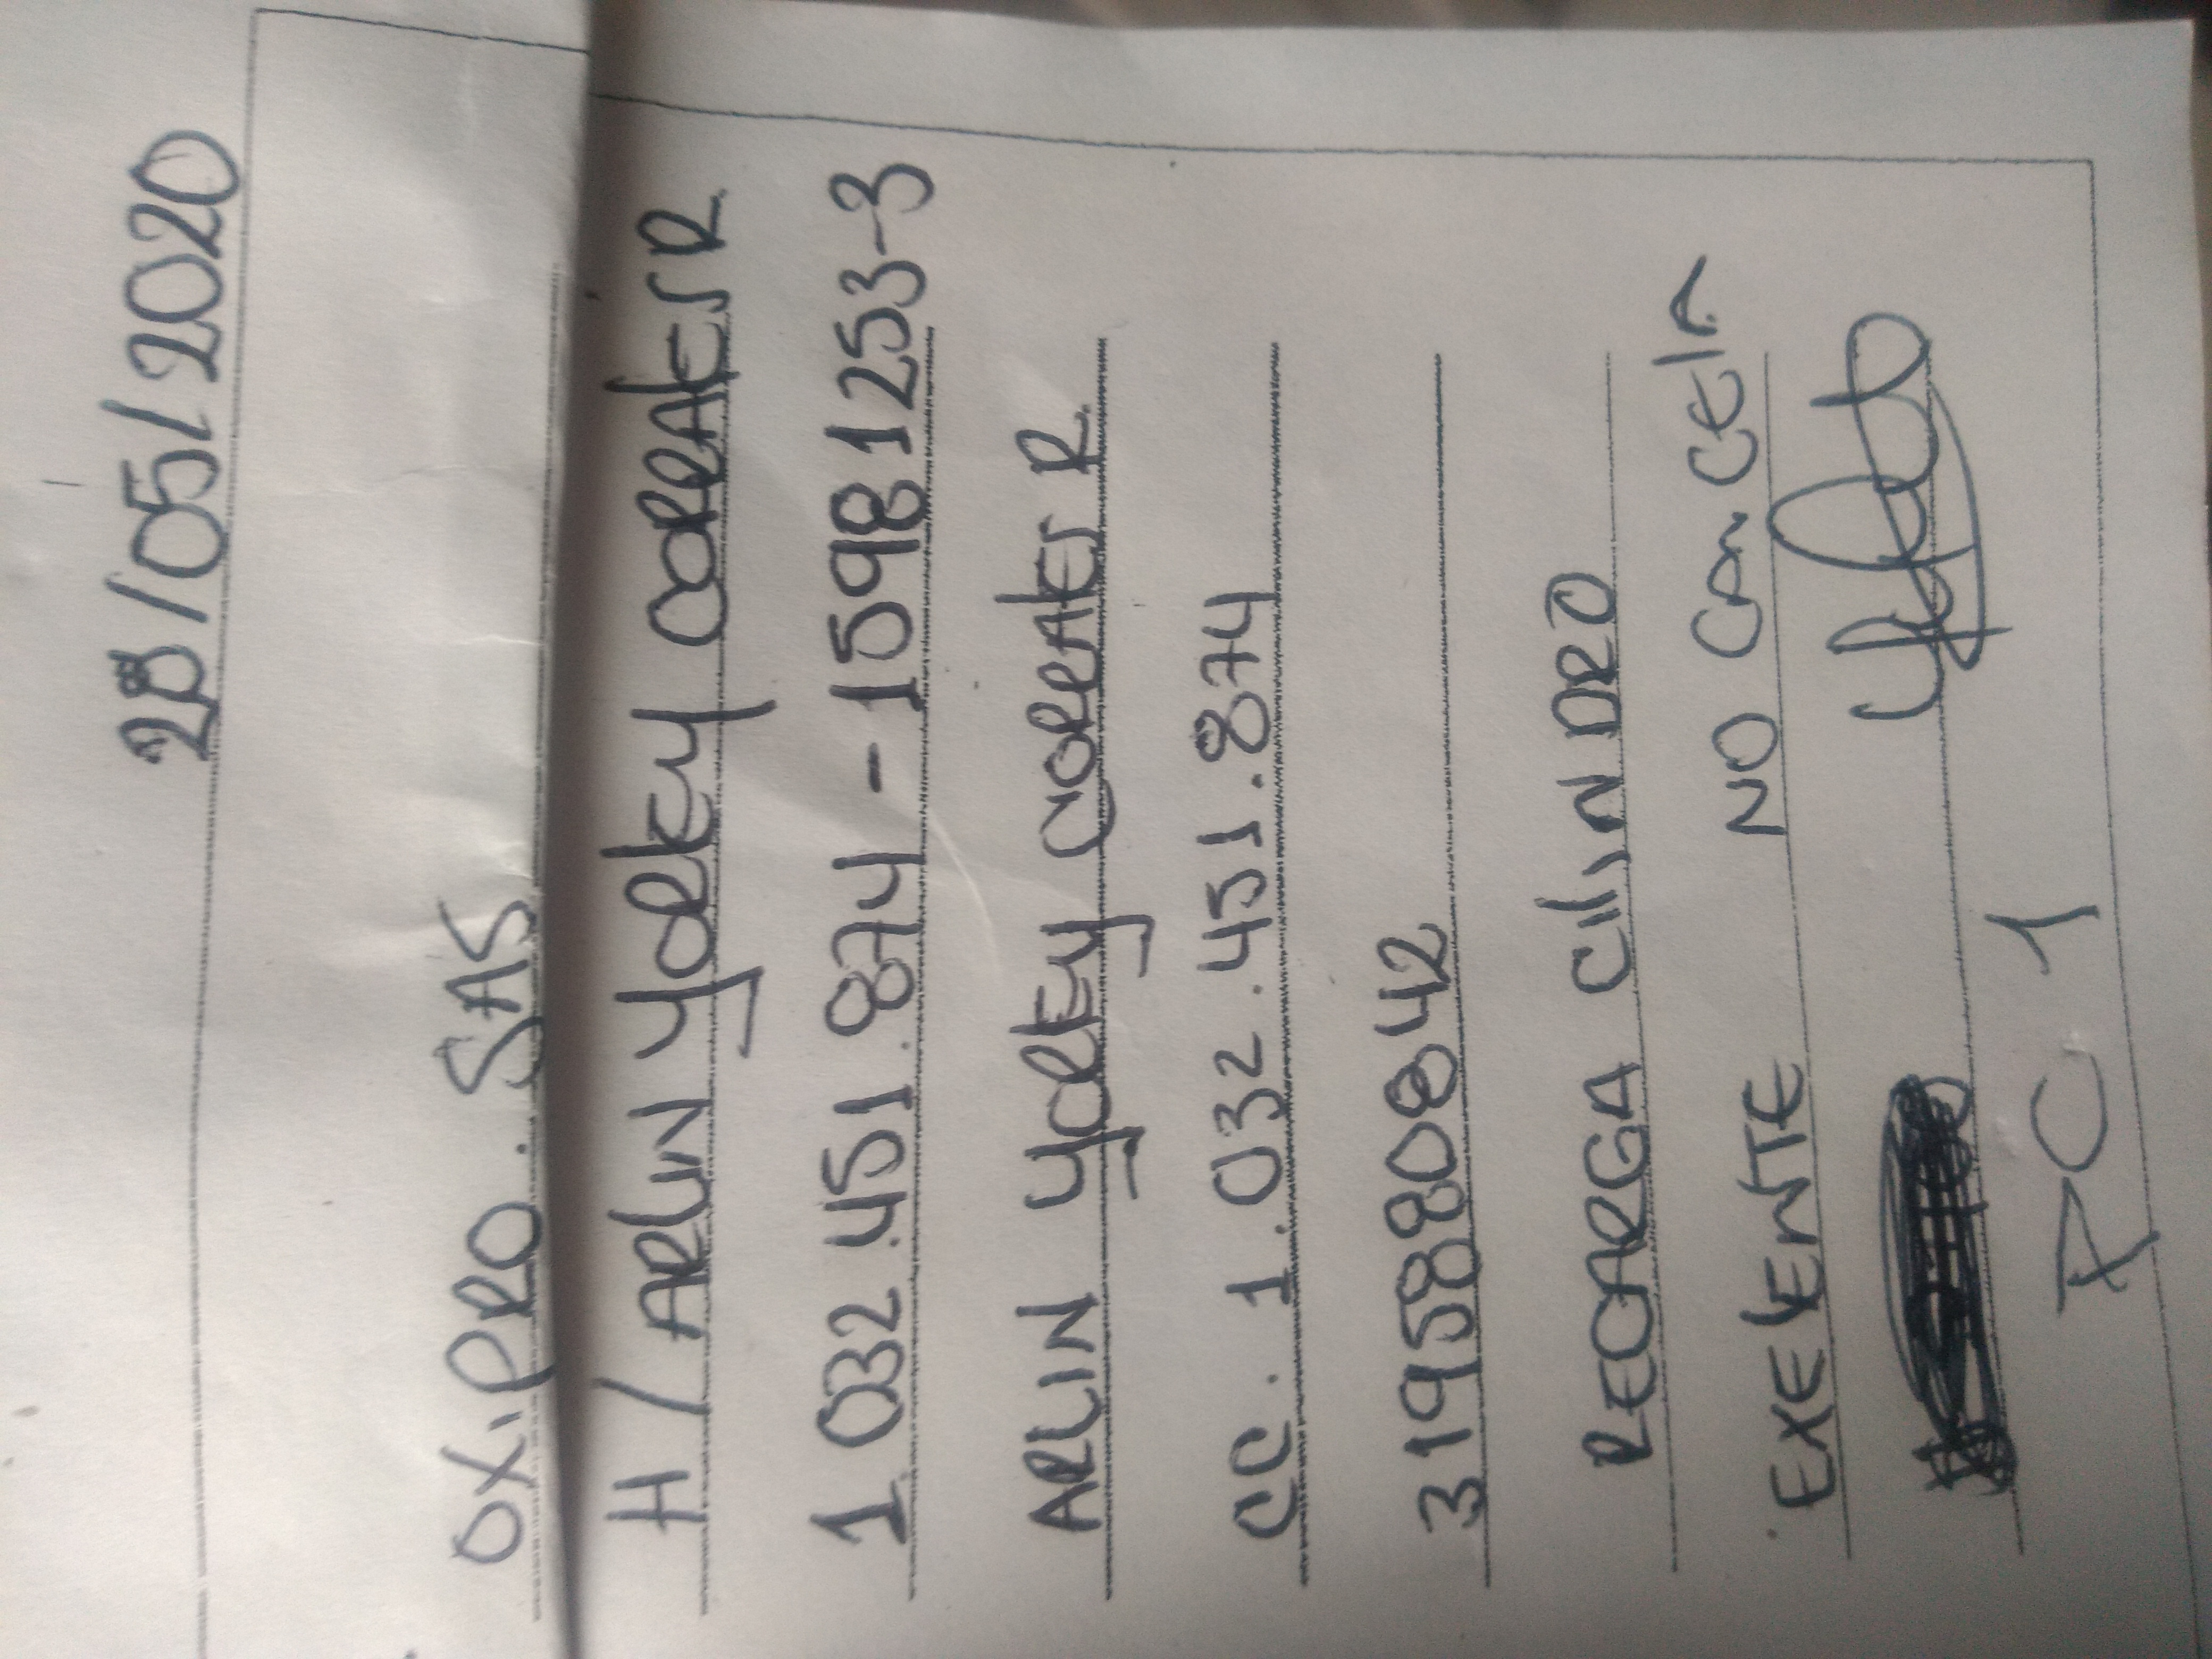 28/05/2020
OXIPRO. SAS
H/ARLIN YORLEY CORREALES R.
1.032.451.874-15981253-3
ARLIN YORLEY CORREALES R.
CC. 1.032.451.874
3195880842
RECARGA CILINDRO
EXELENTE NO CANCELA
PC 1